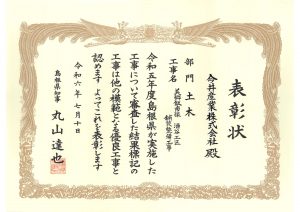 表彰状
今井産業株式会社 殿
部門 土木
工事名
令和五年度島根県が実施した
工事について審査した結果標記の
工事は他の模範となる優良工事と
認めます よってこれを表彰します
令和六年七月十日
島根県知事 丸山達也